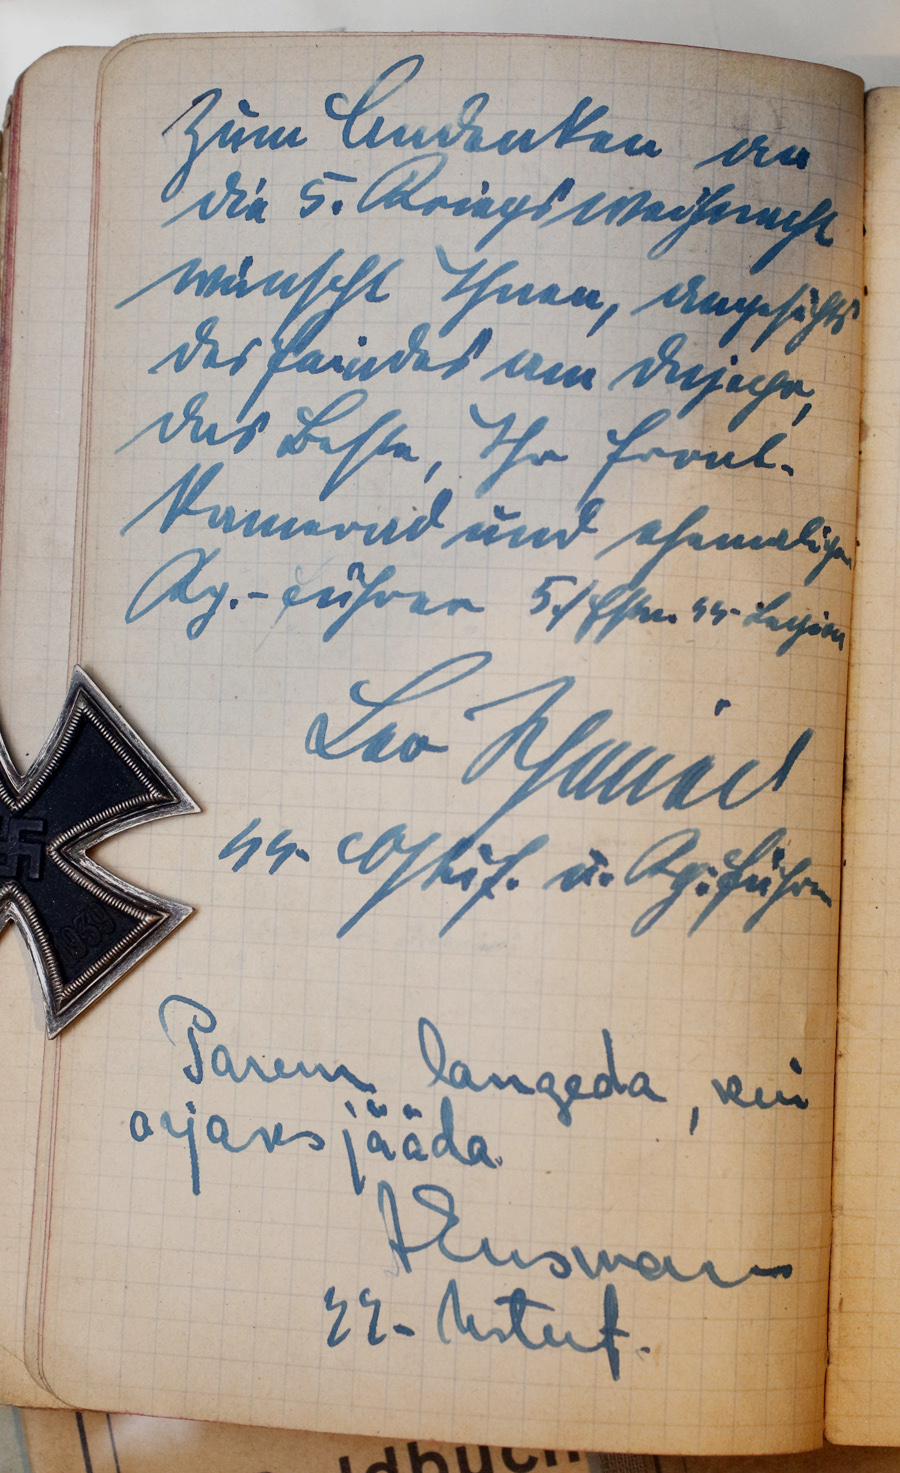 Zum Andenken an
die 5. Kriegsweihnacht
wünscht Ihnen, angesichts
des Feindes am
das Beste, Ihr Front-
kamerad und ehemaliger
Kp.-Führer 5./ Estn. SS-Legion
Leo
SS- Ostuf. u. Kp.Führer
1939
Parem langeda, kui
orjaks jääda.
A Ensmann
SS-Ustuf.
ldbuch